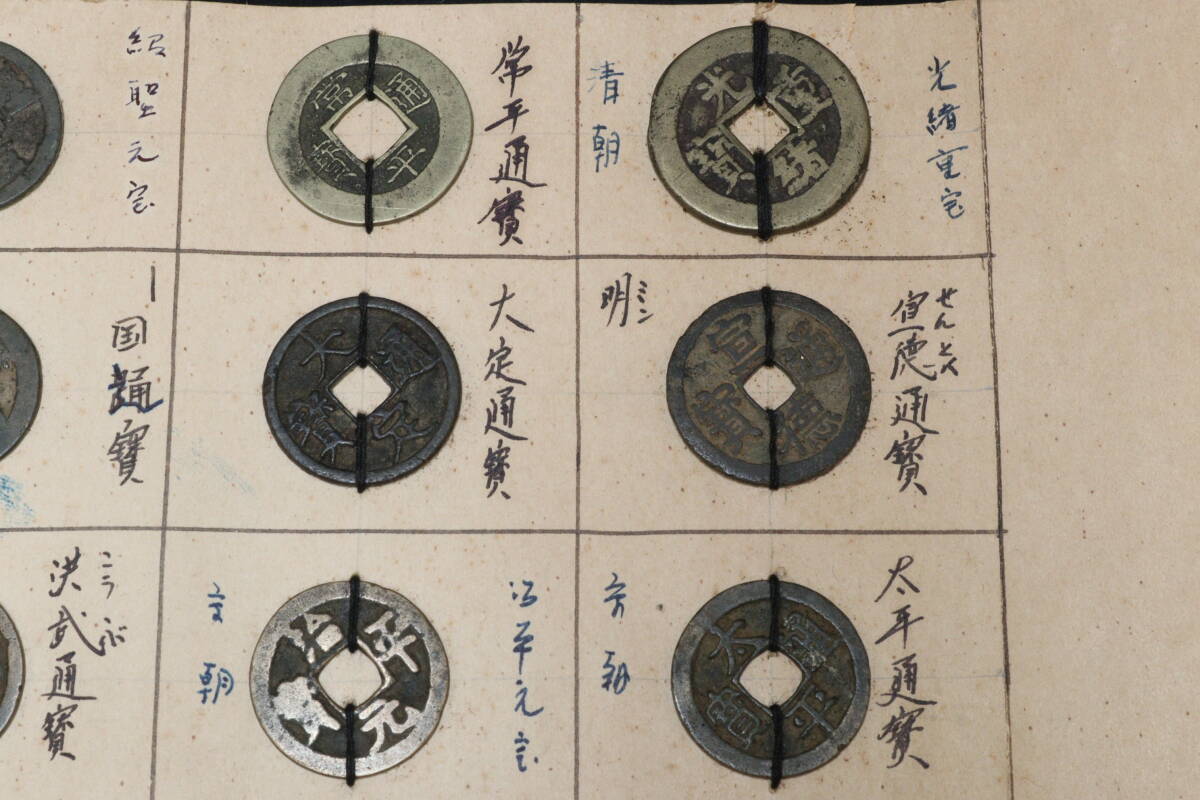 光緒重宝
清朝
常平通寳
紹聖元宝
せんとく
宣徳通寳
ミン
明
大定通寳
国通寳
太平通寳
宋朝
治平元宝
宋朝
こうぶ
洪武通寳